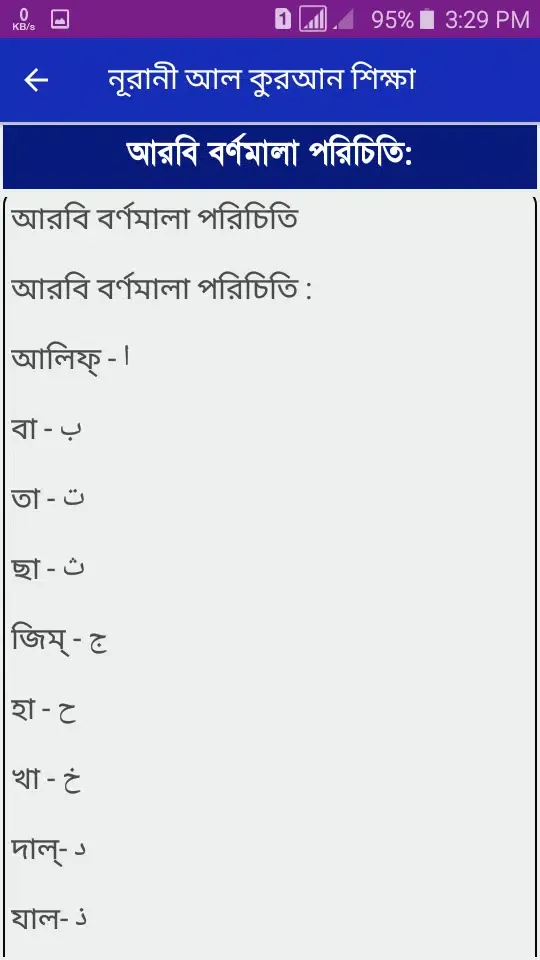 0
KB/s
1
95%
3:29 PM
নূরানী আল কুরআন শিক্ষা
আরবি বর্ণমালা পরিচিতি:
আরবি বর্ণমালা পরিচিতি
আরবি বর্ণমালা পরিচিতি :
আলিফ্ - ا
বা - ب
তা - ت
ছা - ث
জিম্ - ج
হা - ح
খা - خ
দাল্- د
যাল- ذ